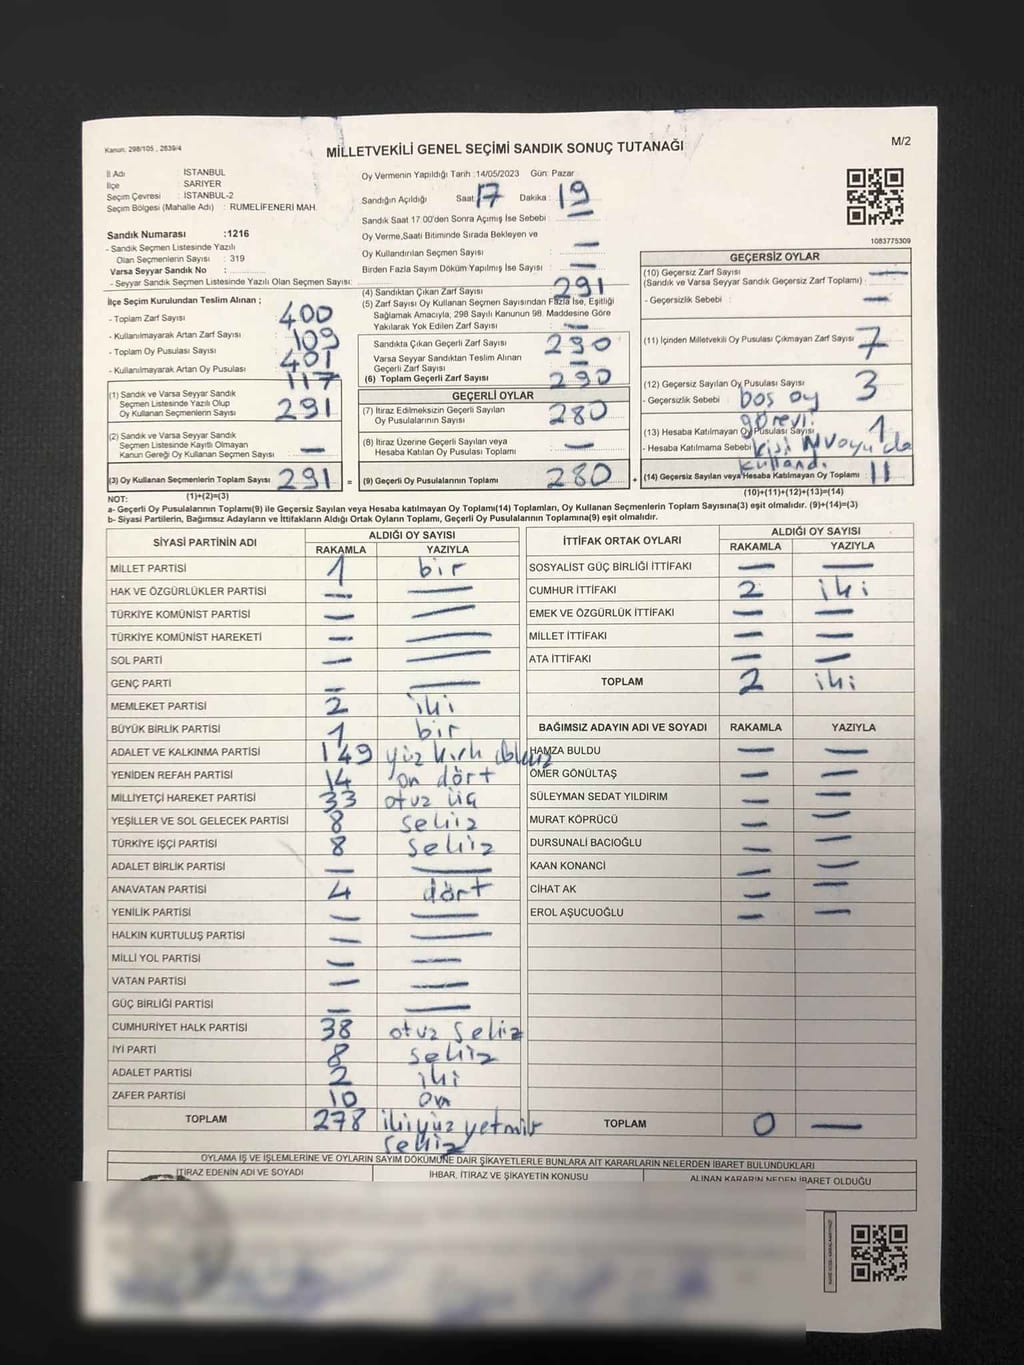 Kanun: 298/105 , 2839/4
MİLLETVEKİLİ GENEL SEÇİMİ SANDIK SONUÇ TUTANAĞI
M/2
İl Adı : İSTANBUL
İlçe : SARIYER
Seçim Çevresi : İSTANBUL-2
Seçim Bölgesi (Mahalle Adı) : RUMELİFENERİ MAH.
Sandık Numarası :1216
- Sandık Seçmen Listesinde Yazılı
Olan Seçmenlerin Sayısı : 319
Varsa Seyyar Sandık No :
- Seyyar Sandık Seçmen Listesinde Yazılı Olan Seçmen Sayısı:
Oy Vermenin Yapıldığı Tarih :14/05/2023 Gün: Pazar
Sandığın Açıldığı Saat: 17 Dakika : 19
Sandık Saat 17.00'den Sonra Açılmış İse Sebebi :
Oy Verme Saati Bitiminde Sırada Bekleyen ve
Oy Kullandırılan Seçmen Sayısı : —
Birden Fazla Sayım Döküm Yapılmış İse Sayısı : —
1083775309
İlçe Seçim Kurulundan Teslim Alınan ;
- Toplam Zarf Sayısı : 400
- Kullanılmayarak Artan Zarf Sayısı : 109
- Toplam Oy Pusulası Sayısı : 401
- Kullanılmayarak Artan Oy Pusulası : 117
(1) Sandık ve Varsa Seyyar Sandık
Seçmen Listesinde Yazılı Olup
Oy Kullanan Seçmenlerin Sayısı : 291
(2) Sandık ve Varsa Seyyar Sandık
Seçmen Listesinde Kayıtlı Olmayan
Kanun Gereği Oy Kullanan Seçmen Sayısı : —
(3) Oy Kullanan Seçmenlerin Toplam Sayısı : 291 =
(4) Sandıktan Çıkan Zarf Sayısı : 291
(5) Zarf Sayısı Oy Kullanan Seçmen Sayısından Fazla İse, Eşitliği
Sağlamak Amacıyla, 298 Sayılı Kanunun 98. Maddesine Göre
Yakılarak Yok Edilen Zarf Sayısı : —
Sandıkta Çıkan Geçerli Zarf Sayısı : 290
Varsa Seyyar Sandıktan Teslim Alınan
Geçerli Zarf Sayısı : —
(6) Toplam Geçerli Zarf Sayısı : 290
GEÇERLİ OYLAR
(7) İtiraz Edilmeksizin Geçerli Sayılan
Oy Pusulalarının Sayısı : 280
(8) İtiraz Üzerine Geçerli Sayılan veya
Hesaba Katılan Oy Pusulası Toplamı : —
(9) Geçerli Oy Pusulalarının Toplamı : 280 +
GEÇERSİZ OYLAR
(10) Geçersiz Zarf Sayısı
(Sandık ve Varsa Seyyar Sandık Geçersiz Zarf Toplamı) : —
- Geçersizlik Sebebi : —
(11) İçinden Milletvekili Oy Pusulası Çıkmayan Zarf Sayısı : 7
(12) Geçersiz Sayılan Oy Pusulası Sayısı : 3
- Geçersizlik Sebebi : boş oy
(13) Hesaba Katılmayan Oy Pusulası Sayısı : 1
- Hesaba Katılmama Sebebi : görevli kişi MV oyu da kullandı.
(14) Geçersiz Sayılan veya Hesaba Katılmayan Oy Toplamı : 11
NOT: (1)+(2)=(3)
(10)+(11)+(12)+(13)=(14)
a- Geçerli Oy Pusulalarının Toplamı(9) ile Geçersiz Sayılan veya Hesaba katılmayan Oy Toplamı(14) Toplamları, Oy Kullanan Seçmenlerin Toplam Sayısına(3) eşit olmalıdır. (9)+(14)=(3)
b- Siyasi Partilerin, Bağımsız Adayların ve İttifakların Aldığı Ortak Oyların Toplamı, Geçerli Oy Pusulalarının Toplamına(9) eşit olmalıdır.
SİYASİ PARTİNİN ADI ALDIĞI OY SAYISI
RAKAMLA YAZIYLA
MİLLET PARTİSİ 1 bir
HAK VE ÖZGÜRLÜKLER PARTİSİ — —
TÜRKİYE KOMÜNİST PARTİSİ — —
TÜRKİYE KOMÜNİST HAREKETİ — —
SOL PARTİ — —
GENÇ PARTİ — —
MEMLEKET PARTİSİ 2 iki
BÜYÜK BİRLİK PARTİSİ 1 bir
ADALET VE KALKINMA PARTİSİ 149 yüz kırk dokuz
YENİDEN REFAH PARTİSİ 14 on dört
MİLLİYETÇİ HAREKET PARTİSİ 33 otuz üç
YEŞİLLER VE SOL GELECEK PARTİSİ 8 sekiz
TÜRKİYE İŞÇİ PARTİSİ 8 sekiz
ADALET BİRLİK PARTİSİ — —
ANAVATAN PARTİSİ 4 dört
YENİLİK PARTİSİ — —
HALKIN KURTULUŞ PARTİSİ — —
MİLLİ YOL PARTİSİ — —
VATAN PARTİSİ — —
GÜÇ BİRLİĞİ PARTİSİ — —
CUMHURİYET HALK PARTİSİ 38 otuz sekiz
İYİ PARTİ 8 sekiz
ADALET PARTİSİ 2 iki
ZAFER PARTİSİ 10 on
TOPLAM 278 ikiyüz yetmiş
sekiz
İTTİFAK ORTAK OYLARI ALDIĞI OY SAYISI
RAKAMLA YAZIYLA
SOSYALİST GÜÇ BİRLİĞİ İTTİFAKI — —
CUMHUR İTTİFAKI 2 iki
EMEK VE ÖZGÜRLÜK İTTİFAKI — —
MİLLET İTTİFAKI — —
ATA İTTİFAKI — —
TOPLAM 2 iki
BAĞIMSIZ ADAYIN ADI VE SOYADI RAKAMLA YAZIYLA
HAMZA BULDU — —
ÖMER GÖNÜLTAŞ — —
SÜLEYMAN SEDAT YILDIRIM — —
MURAT KÖPRÜCÜ — —
DURSUNALİ BACIOĞLU — —
KAAN KONANCİ — —
CİHAT AK — —
EROL AŞUCUOĞLU — —
TOPLAM 0 —
OYLAMA İŞ VE İŞLEMLERİNE VE OYLARIN SAYIM DÖKÜMÜNE DAİR ŞİKAYETLERLE BUNLARA AİT KARARLARIN NELERDEN İBARET BULUNDUKLARI
İTİRAZ EDENİN ADI VE SOYADI İHBAR, İTİRAZ VE ŞİKAYETİN KONUSU ALINAN KARARIN NEDEN İBARET OLDUĞU